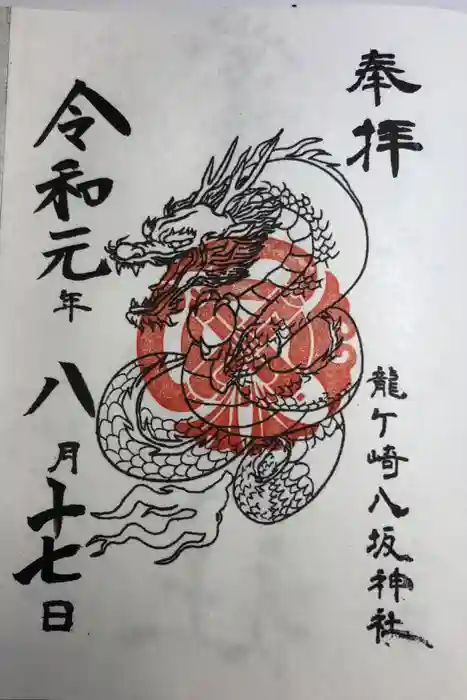 奉拝
龍ケ崎八坂神社
令和元年八月十七日